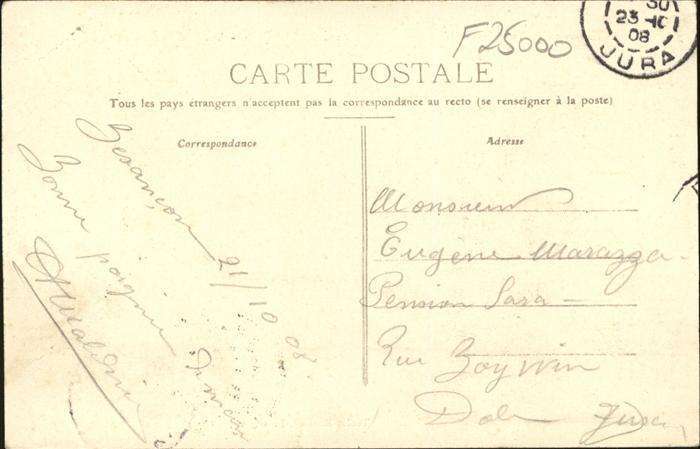 30
23 -10
08
JURA
F25000
CARTE POSTALE
Tous les pays étrangers n'acceptent pas la correspondance au recto (se renseigner à la poste)
Correspondance
Besançon 21/10 08.
Bonne poignée
Adresse
Monsieur
Eugène Marazza
Pension Sara
Rue
Dole Jura